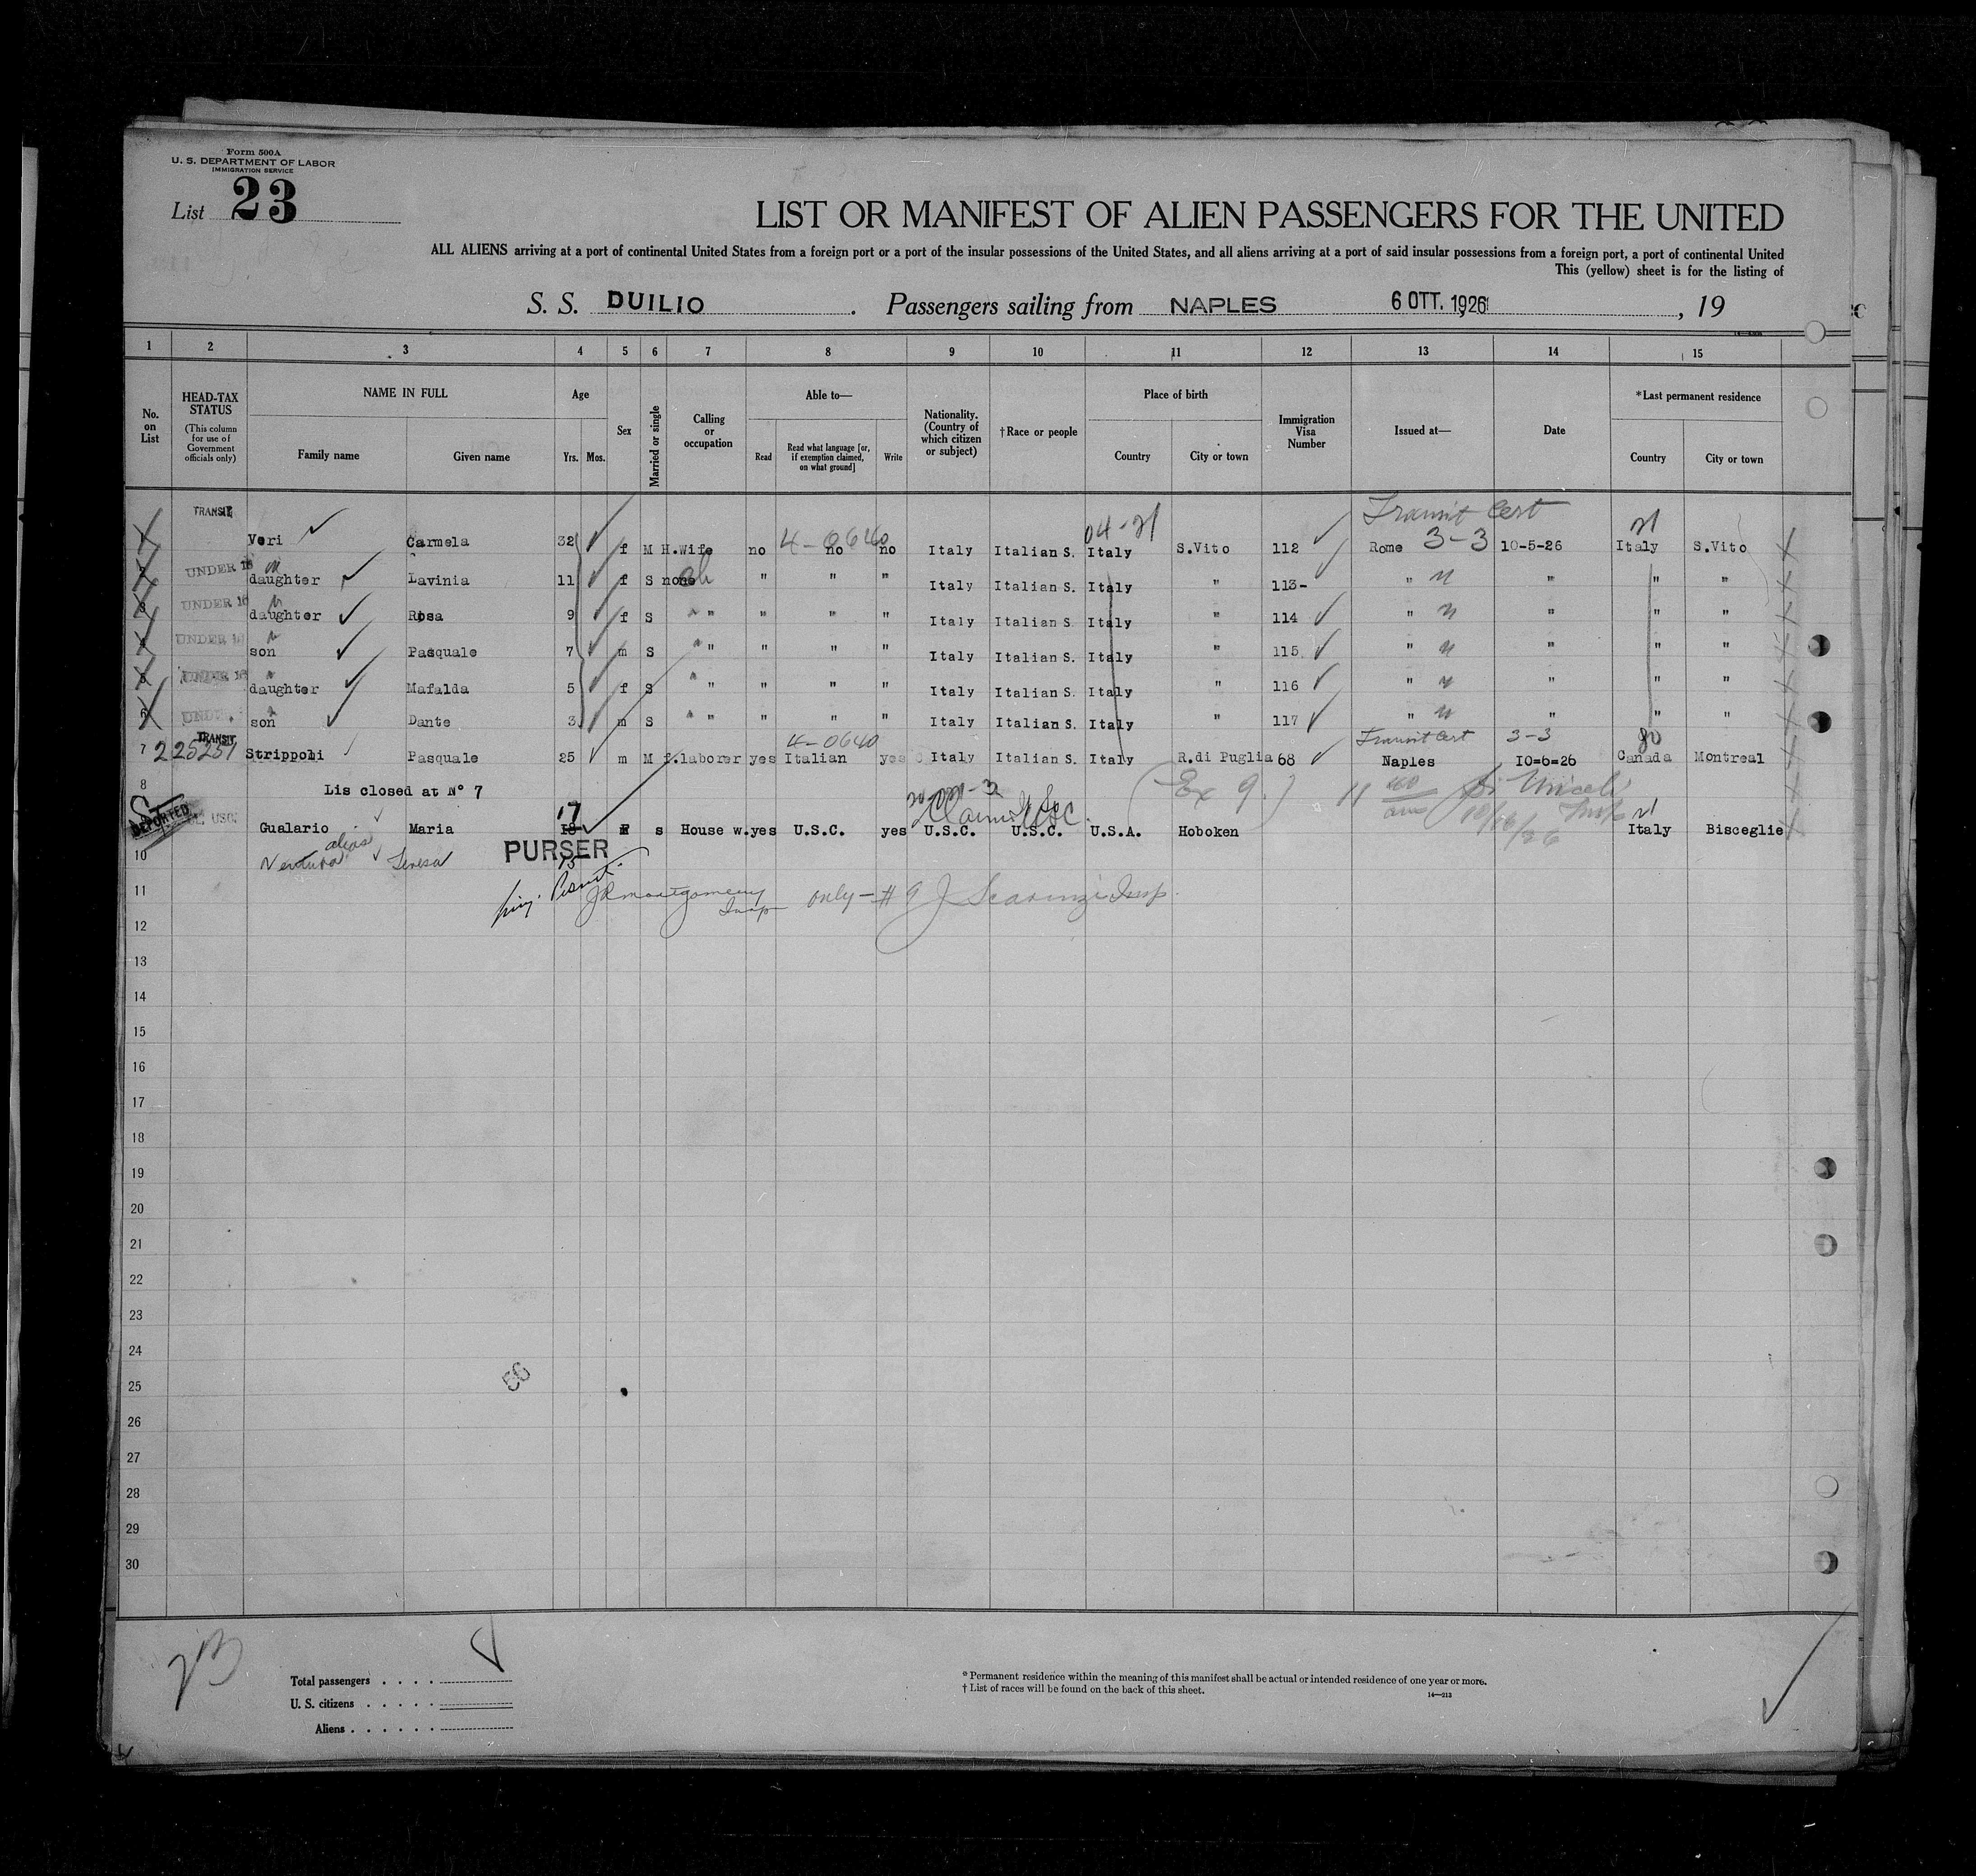 Form 500A
U. S. DEPARTMENT OF LABOR
IMMIGRATION SERVICE
List 23
LIST OR MANIFEST OF ALIEN PASSENGERS FOR THE UNITED
ALL ALIENS arriving at a port of continental United States from a foreign port or a port of the insular possessions of the United States, and all aliens arriving at a port of said insular possessions from a foreign port, a port of continental United
This (yellow) sheet is for the listing of
S. S. DUILIO . Passengers sailing from NAPLES 6 OTT. 1926 , 19
1 2 3 4 5 6 7 8 9 10 11 12 13 14 15
No. on List
HEAD-TAX STATUS
(This column for use of Government officials only)
NAME IN FULL
Family name Given name
Age
Yrs. Mos.
Sex
Married or single
Calling or occupation
Able to—
Read Read what language [or, if exemption claimed, on what ground] Write
Nationality. (Country of which citizen or subject)
†Race or people
Place of birth
Country City or town
Immigration Visa Number
Issued at—
Date
*Last permanent residence
Country City or town
TRANSIT Transit Cert
4-0640 04-21 3-3
Veri Carmela 32 f M H.Wife no no no Italy Italian S. Italy S.Vito 112 Rome 10-5-26 Italy S.Vito
2 UNDER 16 daughter Lavinia 11 f S none " " " Italy Italian S. Italy " 113- " " " "
3 UNDER 16 daughter Rosa 9 f S " " " " Italy Italian S. Italy " 114 " " " "
4 UNDER 16 son Pasquale 7 m S " " " " Italy Italian S. Italy " 115 " " " "
5 UNDER 16 daughter Mafalda 5 f S " " " " Italy Italian S. Italy " 116 " " " "
6 UNDER son Dante 3 m S " " " " Italy Italian S. Italy " 117 " " " "
TRANSIT 4-0640 Transit Cert 3-3
7 225251 Strippoli Pasquale 25 m M f.laborer yes Italian yes Italy Italian S. Italy R.di Puglia 68 Naples 10-6-26 Canada Montreal
8 Lis closed at N° 7
(Ex 9.)
17 Claims USC
DEPORTED USC. Gualario Maria 18 F s House w. yes U.S.C. yes U.S.C. U.S.C. U.S.A. Hoboken 10/16/26 Italy Bisceglie
PURSER
10 alias Ventura Teresa
11 JR Montgomery Insp only - # 9 J Scarinzi Insp.
12
13
14
15
16
17
18
19
20
21
22
23
24
25
26
27
28
29
30
Total passengers . . . .
U. S. citizens . . . . .
Aliens . . . . . .
* Permanent residence within the meaning of this manifest shall be actual or intended residence of one year or more.
† List of races will be found on the back of this sheet.
14—213